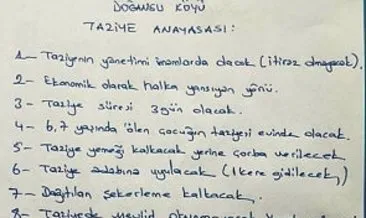 DOĞANSU KÖYÜ
TAZİYE ANAYASASI:
1- Taziyenin yönetimi imamlarda olacak (itiraz olmayacak).
2- Ekonomik olarak halka yansıyan yönü.
3- Taziye süresi 3 gün olacak.
4- 6,7 yaşında ölen çocuğun taziyesi evinde olacak.
5- Taziye yemeği kalkacak yerine çorba verilecek
6- Taziye adabına uyulacak (1 kere gidilecek)
7- Dağıtılan şekerleme kalkacak.
8- Taziyede mevlid